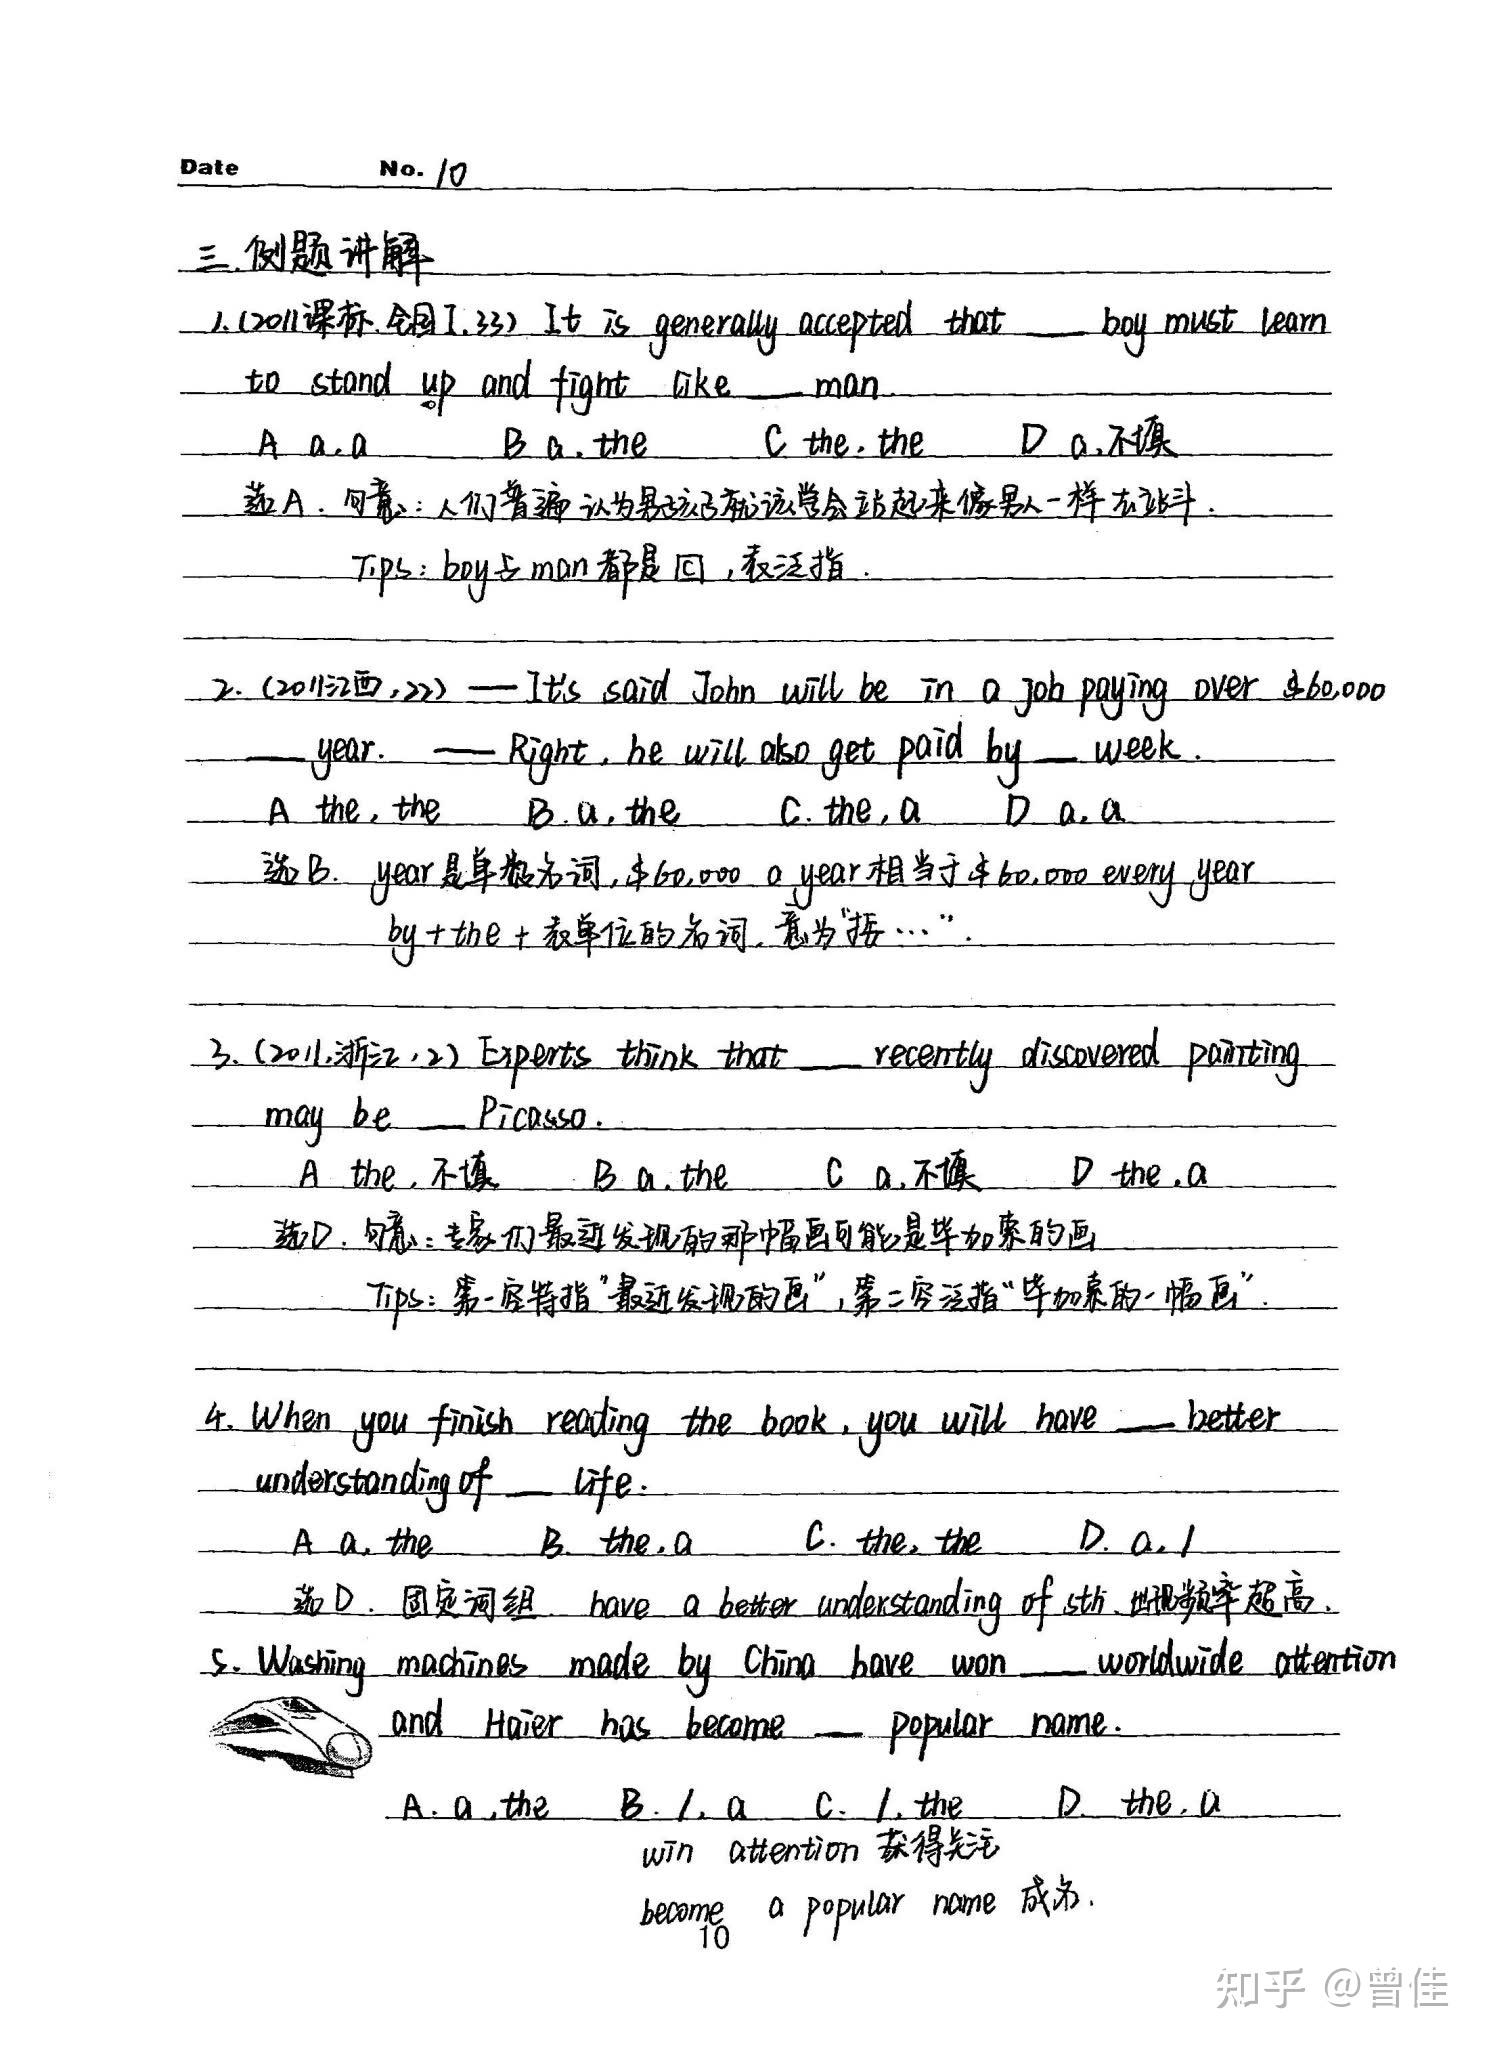 Date No. 10
三.例题讲解
1.(2011课标.全国I.33) It is generally accepted that ___ boy must learn
to stand up and fight like ___ man.
A a.a B a.the C the.the D a.不填
选A. 句意:人们普遍认为男孩子就该学会站起来像男人一样去战斗.
Tips: boy与man都是 C , 表泛指.
2. (2011江西,22) —It's said John will be in a job paying over $60,000
___ year. — Right, he will also get paid by ___ week.
A the, the B.a, the C. the, a D a.a
选B. year是单数名词,$60,000 a year相当于$60,000 every year
by+the+表单位的名词,意为"按…".
3. (2011.浙江,2) Experts think that ___ recently discovered painting
may be ___ Picasso.
A the.不填 B a.the C a.不填 D the.a
选D. 句意:专家们最近发现的那幅画可能是毕加索的画
Tips: 第一空特指"最近发现的画",第二空泛指"毕加索的一幅画".
4. When you finish reading the book, you will have ___ better
understanding of ___ life.
A a. the B. the.a C. the, the D. a. /
选D. 固定词组. have a better understanding of sth.出现频率超高.
5. Washing machines made by China have won ___ worldwide attention
and Haier has become ___ popular name.
A. a .the B. /. a C. /. the D. the. a
win attention 获得关注
become a popular name 成名.
10
知乎 @曾佳